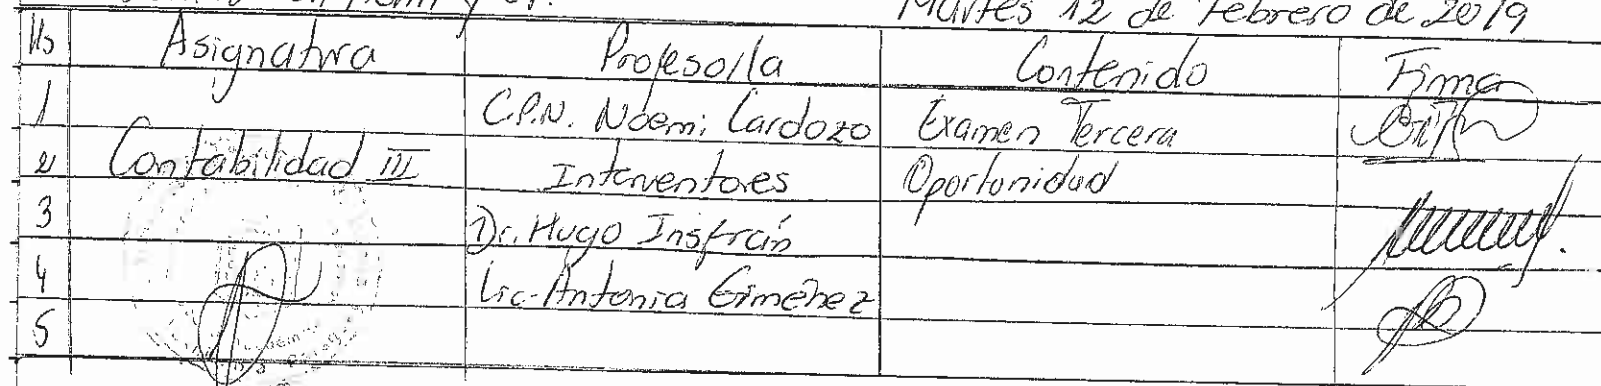 Martes 12 de Febrero de 2019
Hs Asignatura Profesor/la Contenido Firma
1 C.P.N. Noemi Cardozo Examen Tercera
2 Contabilidad III Interventores Oportunidad
3 Dr. Hugo Insfrán
4 Lic. Antonia Giménez
5